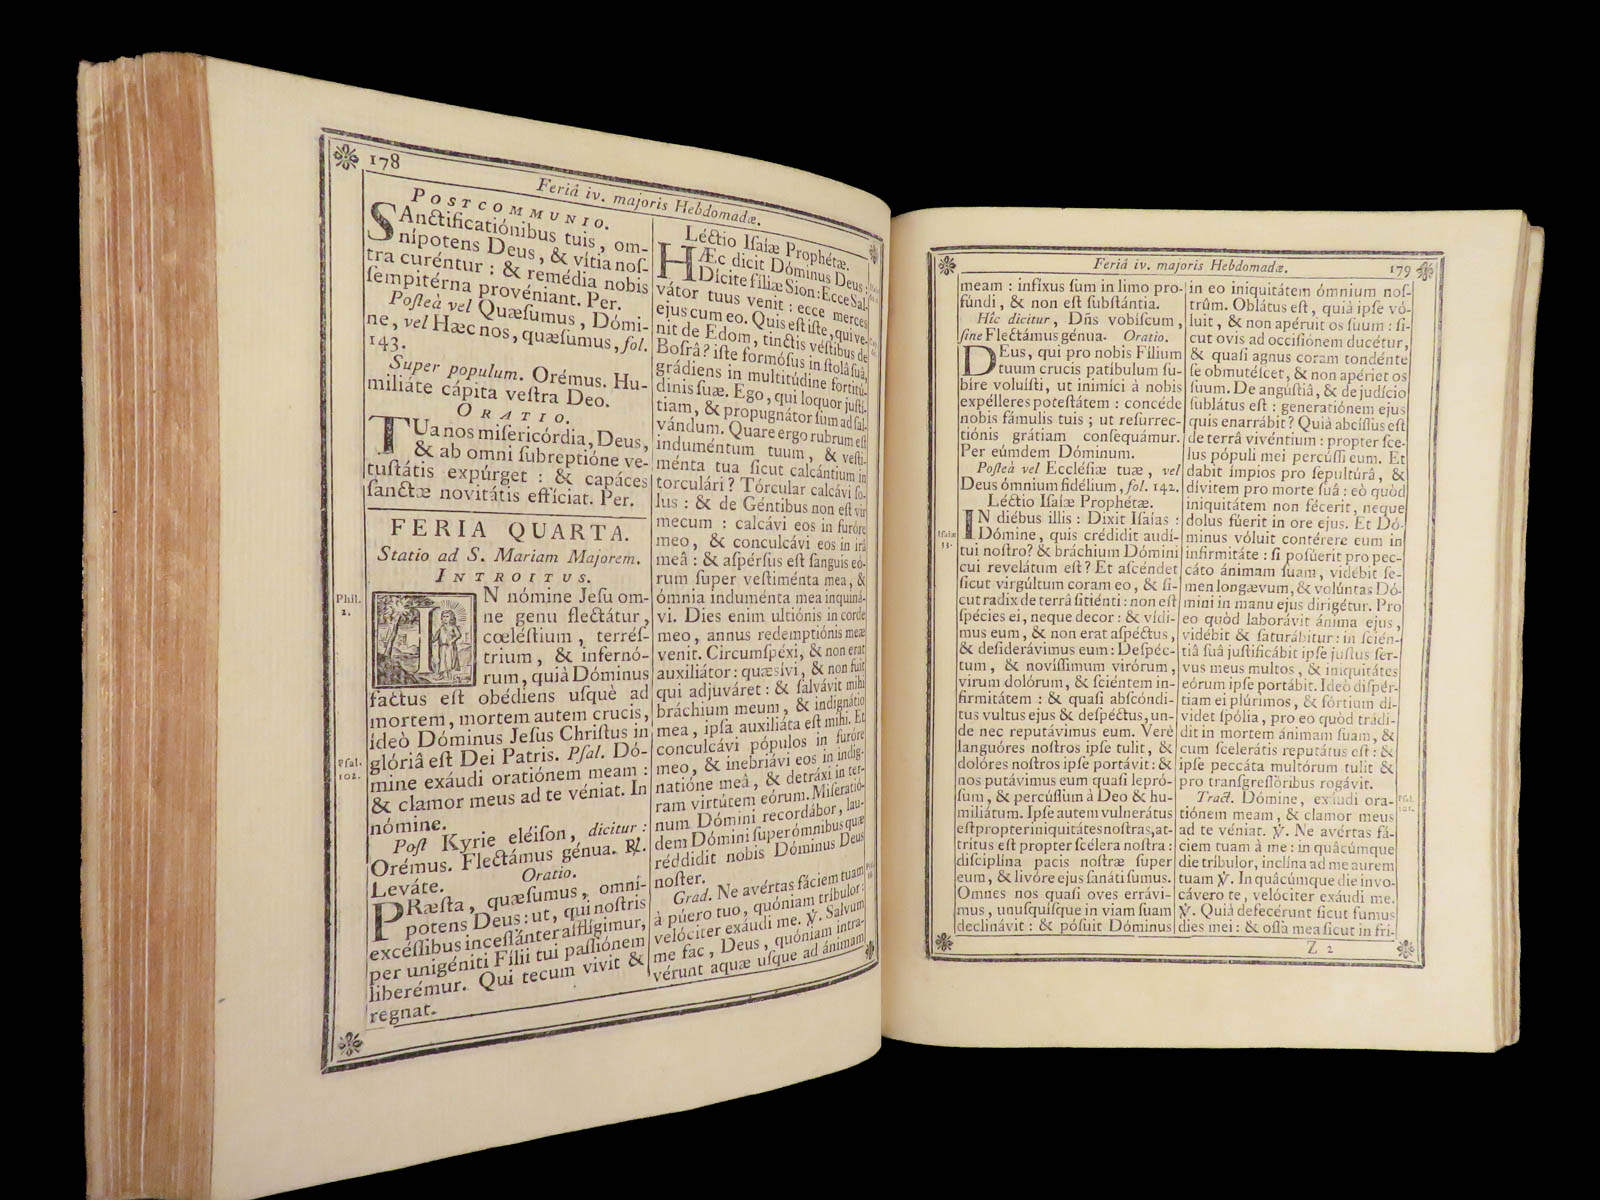 178
Feriâ iv. majoris Hebdomadæ.
POSTCOMMUNIO.
SAnctificatiónibus tuis, om-
nípotens Deus, & vítia noſ-
tra curéntur : & remédia nobis
ſempitérna provéniant. Per.
Poſteà vel Quæſumus, Dómi-
ne, vel Hæc nos, quæſumus, fol.
143.
Super populum. Orémus. Hu-
miliáte cápita veſtra Deo.
ORATIO.
TUa nos miſericórdia, Deus,
& ab omni ſubreptióne ve-
tuſtátis expúrget : & capáces
ſanctæ novitátis effíciat. Per.
FERIA QUARTA.
Statio ad S. Mariam Majorem.
INTROITUS.
Phil.
2.
IN nómine Jeſu om-
ne genu flectátur,
cœléſtium, terréſ-
trium, & infernó-
rum, quià Dóminus
factus eſt obédiens uſquè ad
mortem, mortem autem crucis,
ídeò Dóminus Jeſus Chriſtus in
glóriâ eſt Dei Patris. Pſal. Dó-
Pſal.
102.
mine exáudi oratiónem meam :
& clamor meus ad te véniat. In
nómine.
Poſt Kyrie eléiſon, dicitur :
Orémus. Flectámus génua. ℟.
Leváte.
Oratio.
PRæſta, quæſumus, omní-
potens Deus : ut, qui noſtris
excéſſibus inceſſánter afflígimur,
per unigéniti Fílii tui paſſiónem
liberémur. Qui tecum vivit &
regnat.
Léctio Iſaíæ Prophétæ.
HÆc dicit Dóminus Deus :
Dícite fíliæ Sion : Ecce Sal-
vátor tuus venit : ecce merces
ejus cum eo. Quis eſt iſte, qui ve-
nit de Edom, tinctis véſtibus de
Boſrâ? iſte formóſus in ſtolâ ſuâ,
grádiens in multitúdine fortitú-
dinis ſuæ. Ego, qui loquor juſtí-
tiam, & propugnátor ſum ad ſal-
vándum. Quare ergo rubrum eſt
induméntum tuum, & veſti-
ménta tua ſicut calcántium in
torculári? Tórcular calcávi ſo-
lus : & de Géntibus non eſt vir
mecum : calcávi eos in furóre
meo, & conculcávi eos in irâ
meâ : & aſpérſus eſt ſanguis eó-
rum ſuper veſtiménta mea, &
ómnia induménta mea inquiná-
vi. Dies enim ultiónis in corde
meo, annus redemptiónis meæ
venit. Circumſpéxi, & non erat
auxiliátor : quæsívi, & non fuit
qui adjuváret : & ſalvávit mihi
bráchium meum, & indignátio
mea, ipſa auxiliáta eſt mihi. Et
conculcávi pópulos in furóre
meo, & inebriávi eos in indig-
natióne meâ, & detráxi in ter-
ram virtútem eórum. Miſeratió-
num Dómini recordábor, lau-
dem Dómini ſuper ómnibus quæ
réddidit nobis Dóminus Deus
noſter.
Grad. Ne avértas fáciem tuam
à púero tuo, quóniam tríbulor :
velóciter exáudi me. ℣. Salvum
me fac, Deus, quóniam intra-
vérunt aquæ uſque ad ánimam
Feriâ iv. majoris Hebdomadæ.
179
meam : infixus ſum in limo pro-
fúndi, & non eſt ſubſtántia.
Hîc dicitur, Dñs vobíſcum,
ſine Flectámus génua. Oratio.
DEus, qui pro nobis Fílium
tuum crucis patíbulum ſu-
bíre voluíſti, ut inimíci à nobis
expélleres poteſtátem : concéde
nobis fámulis tuis ; ut reſurrec-
tiónis grátiam conſequámur.
Per eúmdem Dóminum.
Poſteà vel Eccléſiæ tuæ, vel
Deus ómnium fidélium, fol. 142.
Léctio Iſaíæ Prophétæ.
Iſaiæ
53.
IN diébus illis : Dixit Iſaías :
Dómine, quis crédidit audí-
tui noſtro? & bráchium Dómini
cui revelátum eſt? Et aſcéndet
ſicut virgúltum coram eo, & ſi-
cut radix de terrâ ſitiénti : non eſt
ſpécies ei, neque decor : & vídi-
mus eum, & non erat aſpéctus,
& deſiderávimus eum : Deſpéc-
tum, & novíſſimum virórum,
virum dolórum, & ſciéntem in-
firmitátem : & quaſi abſcóndi-
tus vultus ejus & deſpéctus, un-
de nec reputávimus eum. Verè
languóres noſtros ipſe tulit, &
dolóres noſtros ipſe portávit : &
nos putávimus eum quaſi lepró-
ſum, & percúſſum à Deo & hu-
miliátum. Ipſe autem vulnerátus
eſt propter iniquitátes noſtras, at-
trítus eſt propter ſcélera noſtra :
diſciplína pacis noſtræ ſuper
eum, & livóre ejus ſanáti ſumus.
Omnes nos quaſi oves errávi-
mus, unuſquíſque in viam ſuam
declinávit : & póſuit Dóminus
in eo iniquitátem ómnium noſ-
trûm. Oblátus eſt, quià ipſe vó-
luit, & non apéruit os ſuum : ſi-
cut ovis ad occiſiónem ducétur,
& quaſi agnus coram tondénte
ſe obmutéſcet, & non apériet os
ſuum. De angúſtiâ, & de judício
ſublátus eſt : generatiónem ejus
quis enarrábit? Quià abcíſſus eſt
de terrâ vivéntium : propter ſce-
lus pópuli mei percúſſi eum. Et
dabit ímpios pro ſepultúrâ, &
dívitem pro morte ſuâ : eò quòd
iniquitátem non fécerit, neque
dolus fúerit in ore ejus. Et Dó-
minus vóluit contérere eum in
infirmitáte : ſi poſúerit pro pec-
cáto ánimam ſuam, vidébit ſe-
men longævum, & volúntas Dó-
mini in manu ejus dirigétur. Pro
eo quòd laborávit ánima ejus,
vidébit & ſaturábitur : in ſcién-
tiâ ſuâ juſtificábit ipſe juſtus ſer-
vus meus multos, & iniquitátes
eórum ipſe portábit. Ideò diſpér-
tiam ei plúrimos, & fórtium dí-
videt ſpólia, pro eo quòd trádi-
dit in mortem ánimam ſuam, &
cum ſcelerátis reputátus eſt : &
ipſe peccáta multórum tulit &
pro tranſgreſſóribus rogávit.
Tract. Dómine, exáudi ora-
tiónem meam, & clamor meus
ad te véniat. ℣. Ne avértas fá-
ciem tuam à me : in quâcúmque
die tríbulor, inclína ad me aurem
tuam ℣. In quâcúmque die invo-
cávero te, velóciter exáudi me.
℣. Quià defecérunt ſicut fumus
dies mei : & oſſa mea ſicut in fri-
Z 2